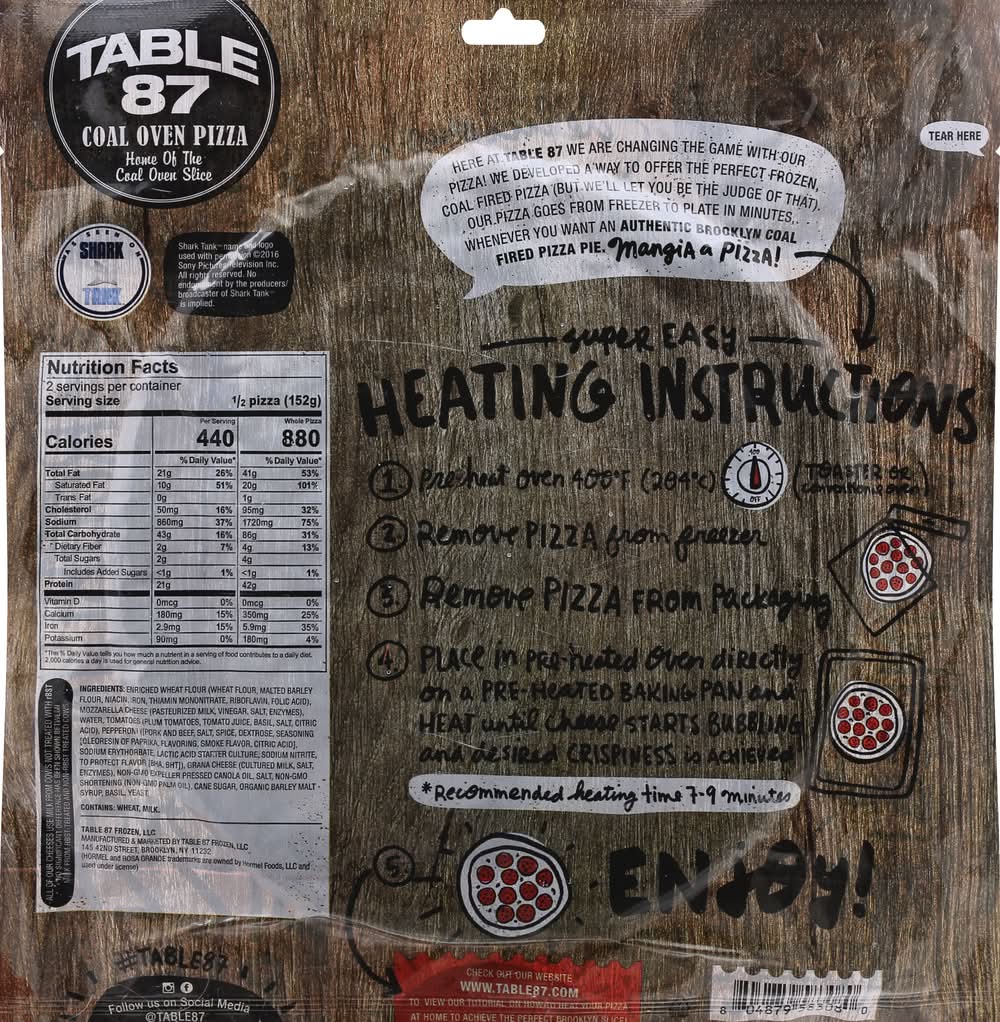 TABLE
87
COAL OVEN PIZZA
Home Of The
Coal Oven Slice
TEAR HERE
HERE AT TABLE 87 WE ARE CHANGING THE GAME WITH OUR
PIZZA! WE DEVELOPED A WAY TO OFFER THE PERFECT FROZEN,
COAL FIRED PIZZA (BUT WE'LL LET YOU BE THE JUDGE OF THAT).
OUR PIZZA GOES FROM FREEZER TO PLATE IN MINUTES,
WHENEVER YOU WANT AN AUTHENTIC BROOKLYN COAL
FIRED PIZZA PIE. Mangia a Pizza!
AS SEEN ON
SHARK
TANK
Shark Tank™ name and logo
used with permission ©2016
Sony Pictures Television Inc.
All rights reserved. No
endorsement by the producers/
broadcaster of Shark Tank™
is implied.
super EASY
HEATING INSTRUCTIONS
1 Preheat oven 400°F (204°C) OFF / TOASTER OR
conventional oven
2 Remove PIZZA from freezer
3 Remove PIZZA FROM Packaging
4 PLACE in pre-heated oven directly
on a PRE-HEATED BAKING PAN and
HEAT until cheese STARTS BUBBLING
and desired CRISPNESS is ACHIEVED
*Recommended heating time 7-9 minutes
5 ENJOY!
Nutrition Facts
2 servings per container
Serving size 1/2 pizza (152g)
Per Serving Whole Pizza
Calories 440 880
% Daily Value* % Daily Value*
Total Fat 21g 26% 41g 53%
Saturated Fat 10g 51% 20g 101%
Trans Fat 0g 1g
Cholesterol 50mg 16% 95mg 32%
Sodium 860mg 37% 1720mg 75%
Total Carbohydrate 43g 16% 86g 31%
Dietary Fiber 2g 7% 4g 13%
Total Sugars 2g 4g
Includes Added Sugars <1g 1% <1g 1%
Protein 21g 42g
Vitamin D 0mcg 0% 0mcg 0%
Calcium 180mg 15% 350mg 25%
Iron 2.9mg 15% 5.9mg 35%
Potassium 90mg 0% 180mg 4%
*The % Daily Value tells you how much a nutrient in a serving of food contributes to a daily diet.
2,000 calories a day is used for general nutrition advice.
ALL OF OUR CHEESES USE MILK FROM COWS NOT TREATED WITH rBST
*NO SIGNIFICANT DIFFERENCE HAS BEEN SHOWN BETWEEN
MILK FROM rBST TREATED AND NON-RBST TREATED COWS
INGREDIENTS: ENRICHED WHEAT FLOUR (WHEAT FLOUR, MALTED BARLEY
FLOUR, NIACIN, IRON, THIAMIN MONONITRATE, RIBOFLAVIN, FOLIC ACID),
MOZZARELLA CHEESE (PASTEURIZED MILK, VINEGAR, SALT, ENZYMES),
WATER, TOMATOES (PLUM TOMATOES, TOMATO JUICE, BASIL, SALT, CITRIC
ACID), PEPPERONI ([PORK AND BEEF, SALT, SPICE, DEXTROSE, SEASONING
[OLEORESIN OF PAPRIKA, FLAVORING, SMOKE FLAVOR, CITRIC ACID],
SODIUM ERYTHORBATE, LACTIC ACID STARTER CULTURE, SODIUM NITRITE,
TO PROTECT FLAVOR [BHA, BHT]), GRANA CHEESE (CULTURED MILK, SALT,
ENZYMES), NON-GMO EXPELLER PRESSED CANOLA OIL, SALT, NON-GMO
SHORTENING (NON GMO PALM OIL), CANE SUGAR, ORGANIC BARLEY MALT
SYRUP, BASIL, YEAST
CONTAINS: WHEAT, MILK.
TABLE 87 FROZEN, LLC
MANUFACTURED & MARKETED BY TABLE 87 FROZEN, LLC
145 42ND STREET, BROOKLYN, NY 11232
(HORMEL and ROSA GRANDE trademarks are owned by Hormel Foods, LLC and
used under license)
#TABLE87
Follow us on Social Media
@TABLE87
CHECK OUT OUR WEBSITE
WWW.TABLE87.COM
TO VIEW OUR TUTORIAL ON HOW TO HEAT YOUR PIZZA
AT HOME TO ACHIEVE THE PERFECT BROOKLYN SLICE!